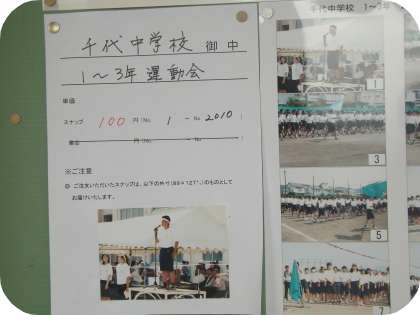 千代中学校 御中
1〜3年 運動会
単価
スナップ 100 円 (No. 1 - No 2010 )
円 (No. - No. )
※ご注意
ご注文いただいたスナップは、以下の外寸(89×127")のものとして
お届けいたします。
千代中学校 1〜3年
1
3
5
7